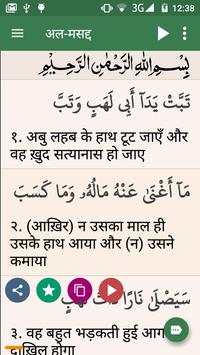 3G 12:38
अल-मसद्द
بِسْمِ اللَّهِ الرَّحْمَٰنِ الرَّحِيمِ
تَبَّتْ يَدَآ أَبِي لَهَبٍ وَتَبَّ
1. अबु लहब के हाथ टूट जाएँ और
वह ख़ुद सत्यानास हो जाए
مَآ أَغْنَىٰ عَنْهُ مَالُهُۥ وَمَا كَسَبَ
2. (आख़िर) न उसका माल ही
उसके हाथ आया और (न) उसने
कमाया
سَيَصْلَىٰ نَارًا ذَاتَ لَهَبٍ
3. वह बहुत भड़कती हुई आग में
दाख़िल होगा